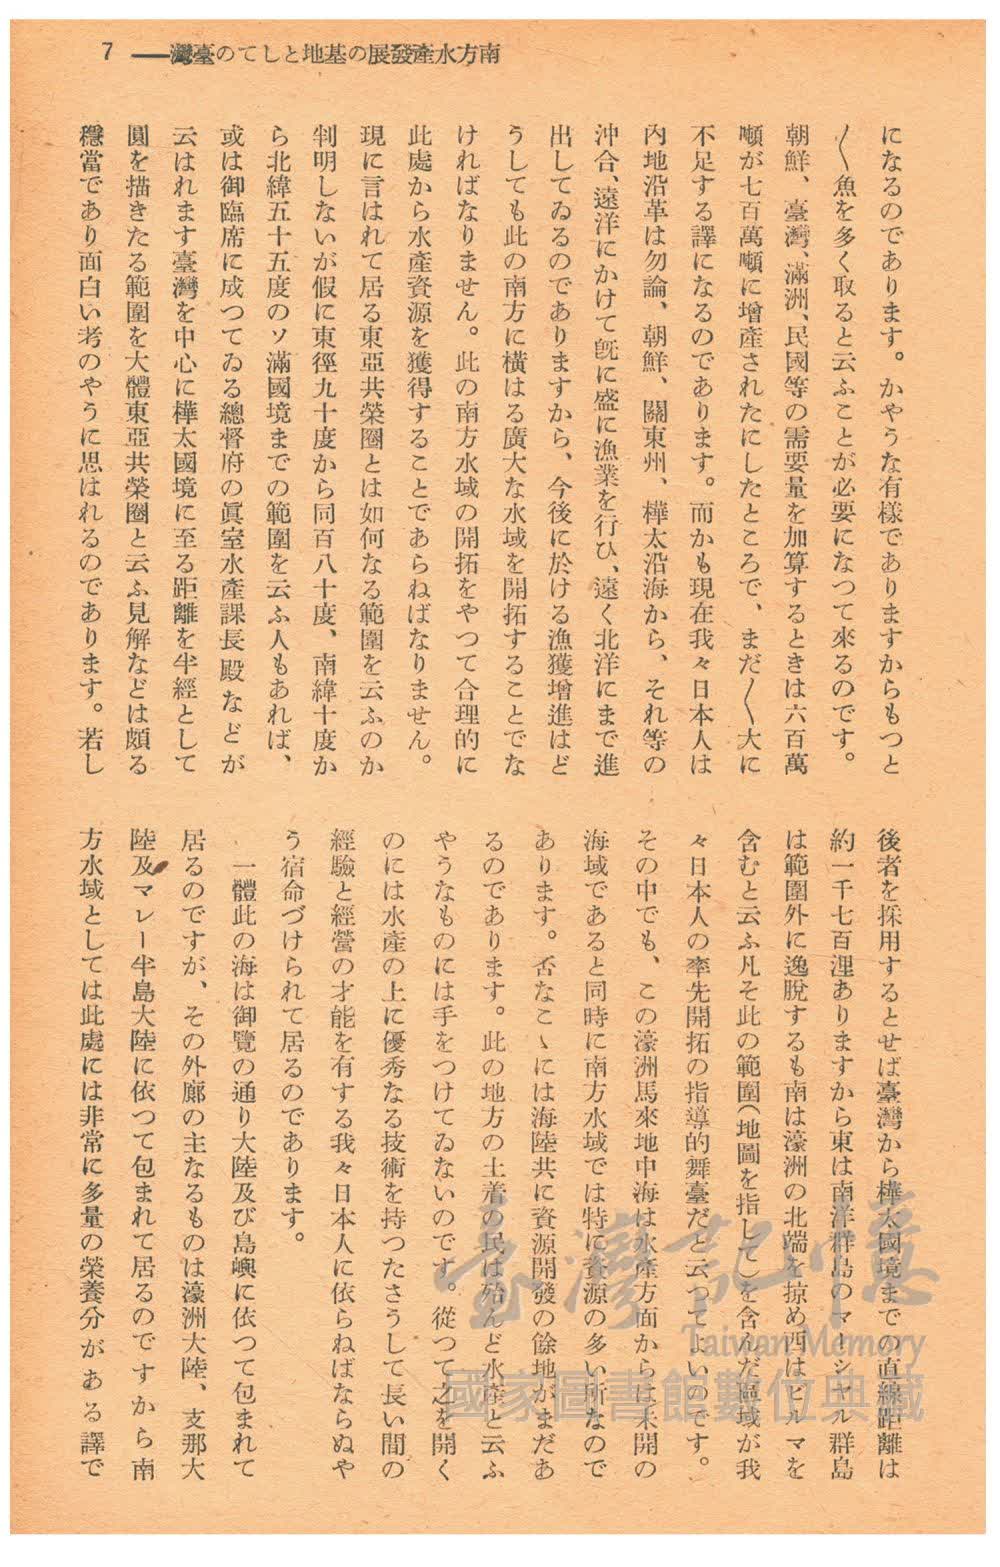 7 ——灣臺のてしと地基の展發產水方南
になるのであります。かやうな有樣でありますからもつと
〱魚を多く取ると云ふことが必要になつて來るのです。
朝鮮、臺灣、滿洲、民國等の需要量を加算するときは六百萬
噸が七百萬噸に增產されたにしたところで、まだ〱大に
不足する譯になるのであります。而かも現在我々日本人は
內地沿革は勿論、朝鮮、關東州、樺太沿海から、それ等の
沖合、遠洋にかけて旣に盛に漁業を行ひ、遠く北洋にまで進
出してゐるのでありますから、今後に於ける漁獲增進はど
うしても此の南方に橫はる廣大な水域を開拓することでな
ければなりません。此の南方水域の開拓をやつて合理的に
此處から水產資源を獲得することであらねばなりません。
現に言はれて居る東亞共榮圈とは如何なる範圍を云ふのか
判明しないが假に東徑九十度から同百八十度、南緯十度か
ら北緯五十五度のソ滿國境までの範圍を云ふ人もあれば、
或は御臨席に成つてゐる總督府の眞室水產課長殿などが
云はれます臺灣を中心に樺太國境に至る距離を半經として
圓を描きたる範圍を大體東亞共榮圈と云ふ見解などは頗る
穩當であり面白い考のやうに思はれるのであります。若し
後者を採用するとせば臺灣から樺太國境までの直線距離は
約一千七百浬ありますから東は南洋群島のマーシヤル群島
は範圍外に逸脫するも南は濠洲の北端を掠め西はビルマを
含むと云ふ凡そ此の範圍(地圖を指して)を含んだ區域が我
々日本人の率先開拓の指導的舞臺だと云つてよいのです。
その中でも、この濠洲馬來地中海は水產方面からは未開の
海域であると同時に南方水域では特に資源の多い所なので
あります。否なこゝには海陸共に資源開發の餘地がまだあ
るのであります。此の地方の土着の民は殆んど水產と云ふ
やうなものには手をつけてゐないのです。從つて之を開く
のには水產の上に優秀なる技術を持つたさうして長い間の
經驗と經營の才能を有する我々日本人に依らねばならぬや
う宿命づけられて居るのであります。
一體此の海は御覽の通り大陸及び島嶼に依つて包まれて
居るのですが、その外廓の主なるものは濠洲大陸、支那大
陸及マレー半島大陸に依つて包まれて居るのですから南
方水域としては此處には非常に多量の榮養分がある譯で
臺灣記憶
Taiwan Memory
國家圖書館數位典藏